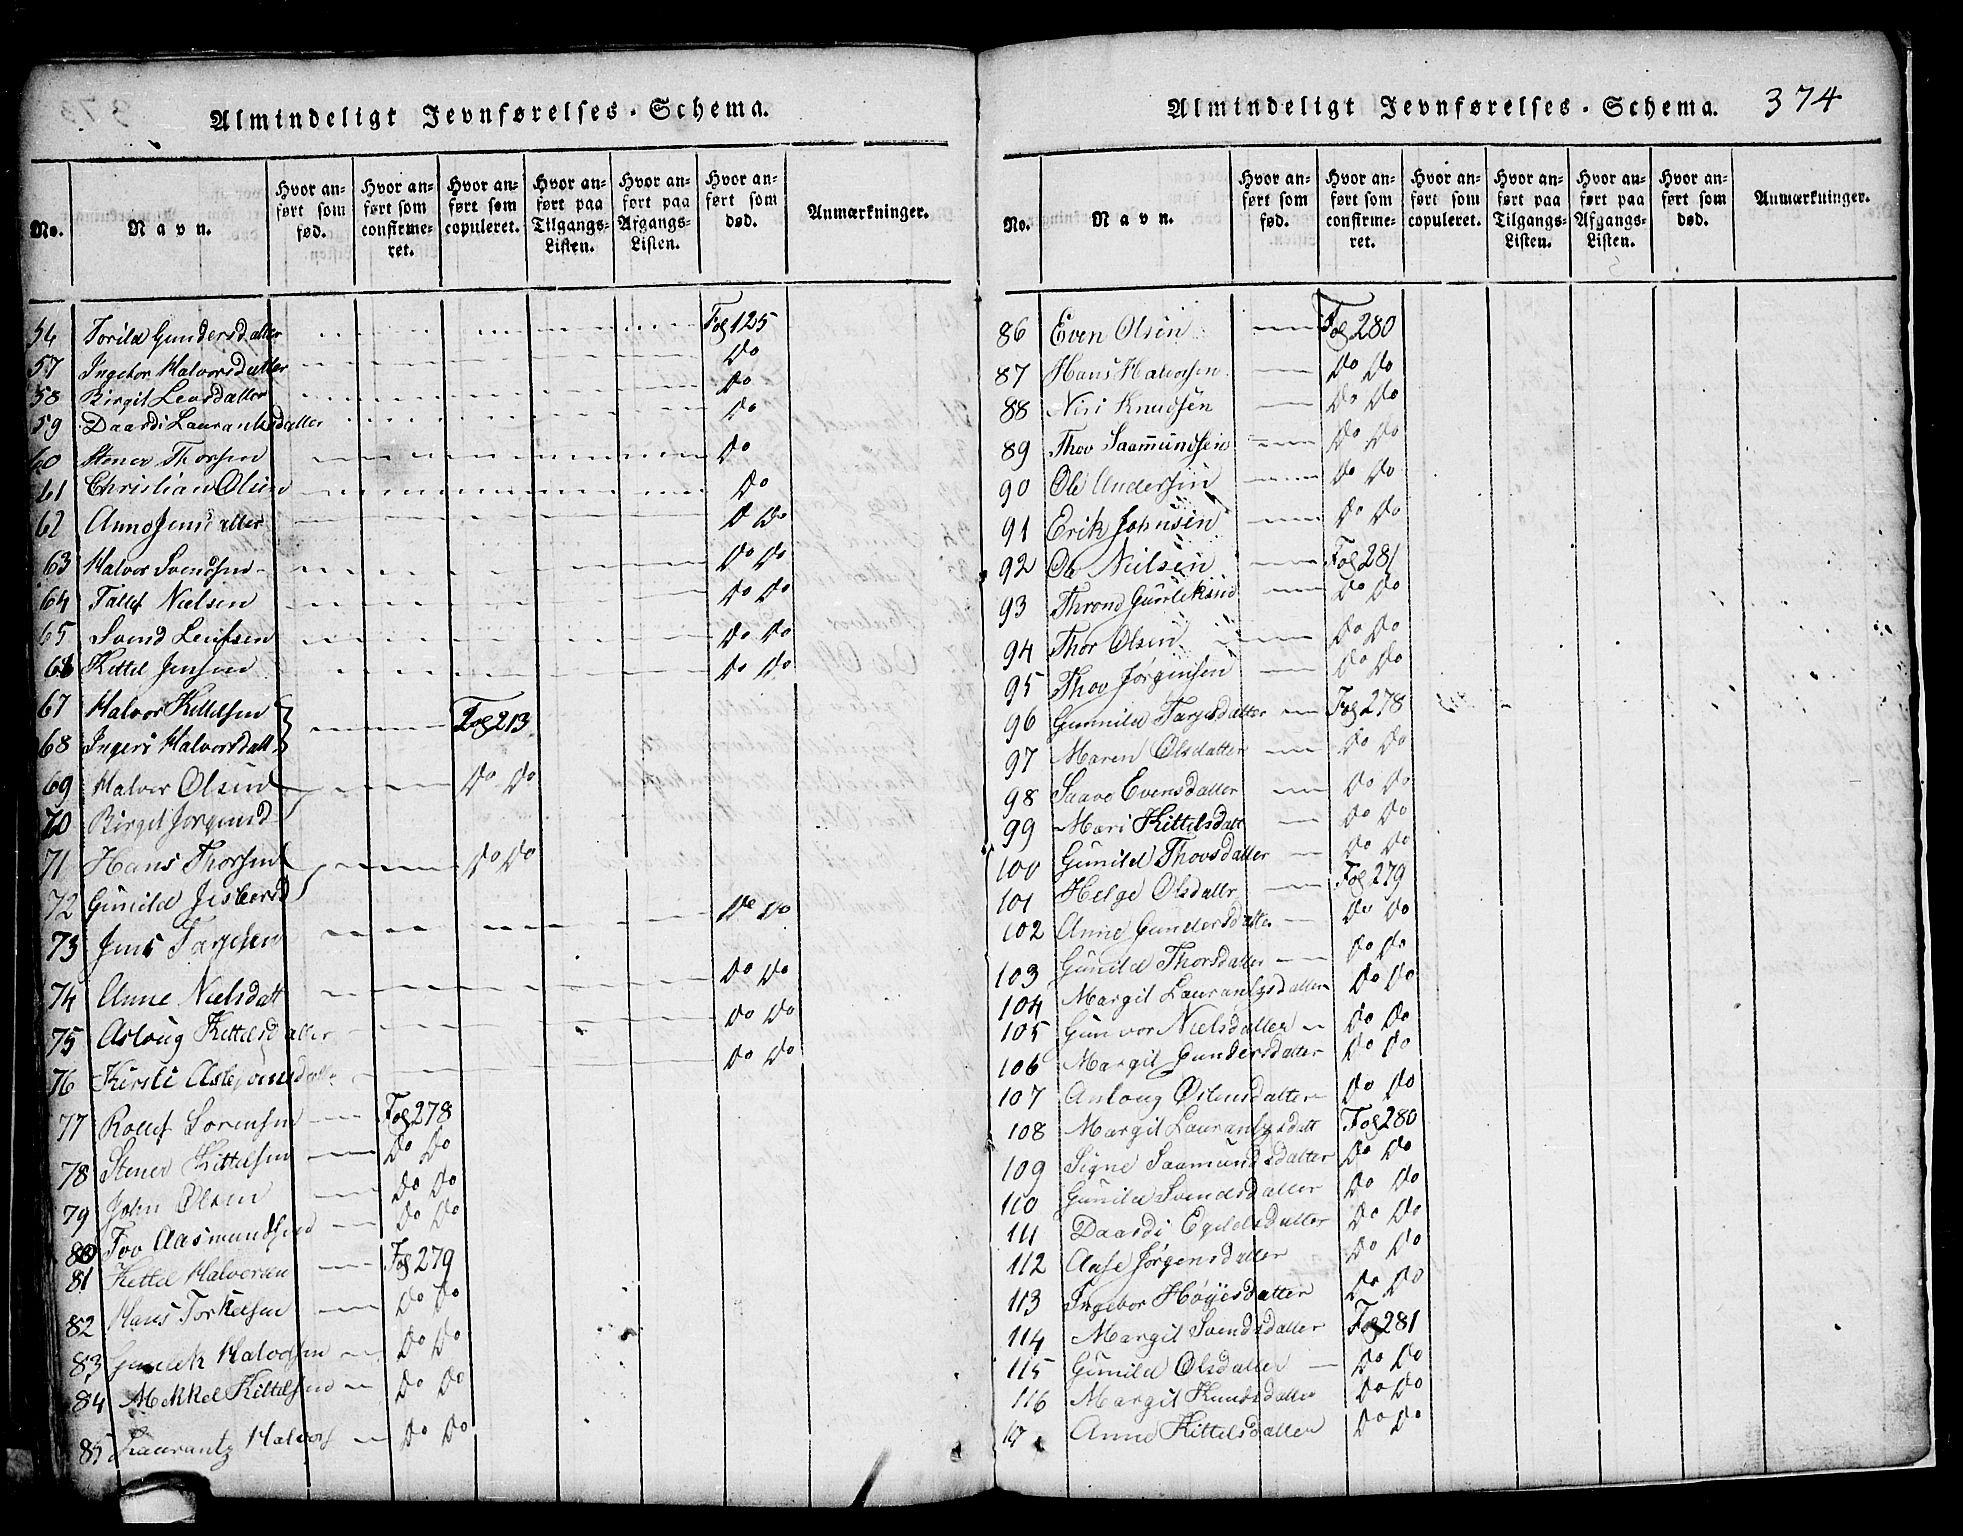 Almindeligt Jevnførelses-Schema.
No. Navn. Hvor anført som fød. Hvor anført som confirmeret. Hvor anført som copuleret. Hvor anført paa Tilgangs-Listen. Hvor anført paa Afgangs-Listen. Hvor anført som død. Anmærkninger.
56 Torild Gundersdatter Fol 125
57 Ingebor Halvorsdatter Do
58 Birgit Levsdatter Do
59 Daardi Laurantzdatter Do
60 Stener Thorsen Do
61 Christian Olsen Do
62 Anne Jensdatter Do Do
63 Halvor Svendsen Do Do
64 Tallef Nielsen Do Do
65 Svend Leufsen Do Do
66 Kittel Jensen Do Do
67 Halvor Kittelsen
68 Ingeri Halvorsdatt Fol 213
69 Halvor Olsen Do Do
70 Birgit Jorgensd
71 Hans Thorsen Do Do
72 Gunild
73 Jens Targesen Do Do
74 Anne Nielsdatt Do Do
75 Asloug Kittelsdatter Do Do
76 Kirsti Do Do
77 Rollef Sorensen Fol 278
78 Stener Kittelsen Do Do
79 John Olsen Do Do
80 Tov Aasmundsen Do Do
81 Kettel Halvorsen Fol 279
82 Hans Torkelsen Do Do
83 Gunlek Halvorsen Do Do
84 Mekkel Kittelsen Do Do
85 Laurantz Halvors Do Do
Almindeligt Jevnførelses-Schema. 374
No. Navn. Hvor anført som fød. Hvor anført som confirmeret. Hvor anført som copuleret. Hvor anført paa Tilgangs-Listen. Hvor anført paa Afgangs-Listen. Hvor anført som død. Anmærkninger.
86 Even Olsen Fol 280
87 Hans Halvorsen Do Do
88 Niri Knudsen Do Do
89 Thov Saamundsen Do Do
90 Ole Andersen Do Do
91 Erik Johnsen Do Do
92 Ole Nielsen Fol 281
93 Thrond Gunleksen Do Do
94 Thor Olsen Do Do
95 Thov Jørgensen Do Do
96 Gunnild Targesdatter Fol 278
97 Maren Olsdatter Do Do
98 Saave Evensdatter Do Do
99 Mari Kittelsdatt Do Do
100 Gunild Thovsdatter Do Do
101 Helge Olsdatter Fol 279
102 Anne Gundersdatter Do Do
103 Gunild Thorsdatter Do Do
104 Margit Laurantzsdatter Do Do
105 Gunvor Nielsdatter Do Do
106 Margit Gundersdatter Do Do
107 Anloug Østensdatter Do Do
108 Margit Laurantzsdatt Fol 280
109 Signe Saamundsdatter Do Do
110 Gunild Svendsdatter Do Do
111 Daardi Do Do
112 Aase Jørgensdatter Do Do
113 Ingebor Høyesdatter Do Do
114 Margit Svendsdatter Fol 281
115 Gunild Olsdatter Do Do
116 Margit Knudsdatter Do Do
117 Anne Kittelsdatter Do Do